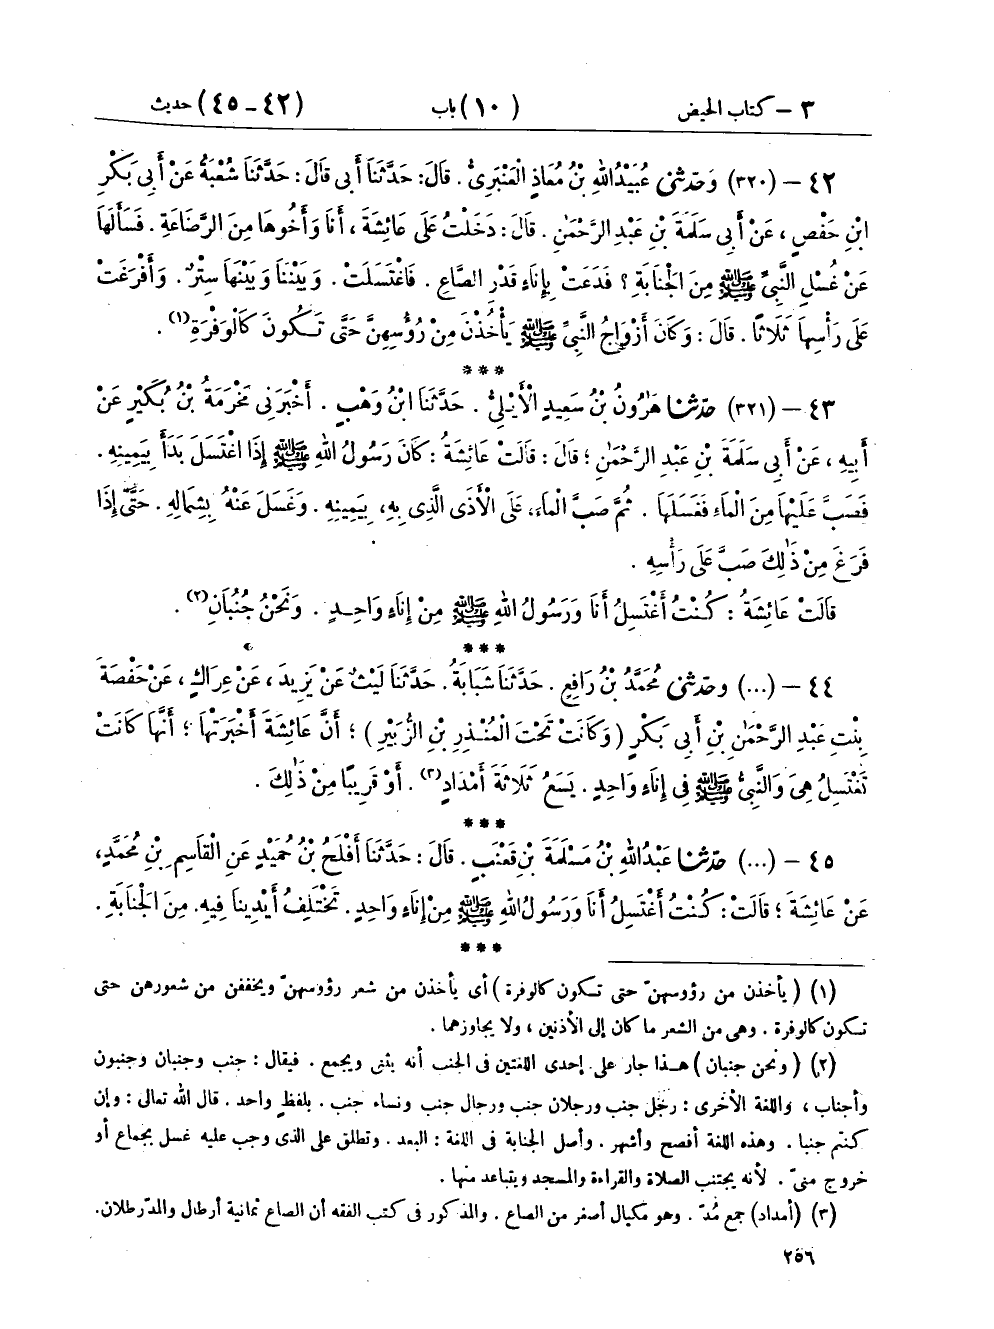 ٣ – كتاب الحيض (١٠) باب (٤٢ – ٤٥) حديث
٤٢ – (٣٢٠) وَحَدَّثَنِي عُبَيْدُ اللهِ بْنُ مُعَاذٍ الْعَنْبَرِيُّ . قَالَ: حَدَّثَنَا أَبِي قَالَ : حَدَّثَنَا شُعْبَةُ عَنْ أَبِي بَكْرِ
ابْنِ حَفْصٍ ، عَنْ أَبِي سَلَمَةَ بْنِ عَبْدِ الرَّحْمَٰنِ . قَالَ : دَخَلْتُ عَلَى عَائِشَةَ ، أَنَا وَأَخُوهَا مِنَ الرَّضَاعَةِ . فَسَأَلَهَا
عَنْ غُسْلِ النَّبِيِّ ﷺ مِنَ الْجَنَابَةِ ؟ فَدَعَتْ بِإِنَاءٍ قَدْرِ الصَّاعِ . فَاغْتَسَلَتْ . وَبَيْنَنَا وَبَيْنَهَا سِتْرٌ . وَأَفْرَغَتْ
عَلَى رَأْسِهَا ثَلَاثًا . قَالَ : وَكَانَ أَزْوَاجُ النَّبِيِّ ﷺ يَأْخُذْنَ مِنْ رُؤُسِهِنَّ حَتَّى تَكُونَ كَالْوَفْرَةِ(١) .
***
٤٣ – (٣٢١) حَدَّثَنَا هَارُونُ بْنُ سَعِيدٍ الْأَيْلِيُّ . حَدَّثَنَا ابْنُ وَهْبٍ . أَخْبَرَنِي مَخْرَمَةُ بْنُ بُكَيْرٍ عَنْ
أَبِيهِ ، عَنْ أَبِي سَلَمَةَ بْنِ عَبْدِ الرَّحْمَٰنِ ؛ قَالَ : قَالَتْ عَائِشَةُ : كَانَ رَسُولُ اللهِ ﷺ إِذَا اغْتَسَلَ بَدَأَ بِيَمِينِهِ .
فَصَبَّ عَلَيْهَا مِنَ الْمَاءِ فَغَسَلَهَا . ثُمَّ صَبَّ الْمَاءَ، عَلَى الْأَذَى الَّذِي بِهِ، بِيَمِينِهِ . وَغَسَلَ عَنْهُ بِشِمَالِهِ . حَتَّى إِذَا
فَرَغَ مِنْ ذَٰلِكَ صَبَّ عَلَى رَأْسِهِ .
قَالَتْ عَائِشَةُ : كُنْتُ أَغْتَسِلُ أَنَا وَرَسُولُ اللهِ ﷺ مِنْ إِنَاءٍ وَاحِدٍ . وَنَحْنُ جُنُبَانِ(٢) .
***
٤٤ – (...) وحَدَّثَنِي مُحَمَّدُ بْنُ رَافِعٍ . حَدَّثَنَا شَبَابَةُ . حَدَّثَنَا لَيْثٌ عَنْ يَزِيدَ ، عَنْ عِرَاكٍ ، عَنْ حَفْصَةَ
بِنْتِ عَبْدِ الرَّحْمَٰنِ بْنِ أَبِي بَكْرٍ ( وَكَانَتْ تَحْتَ الْمُنْذِرِ بْنِ الزُّبَيْرِ ) ؛ أَنَّ عَائِشَةَ أَخْبَرَتْهَا ؛ أَنَّهَا كَانَتْ
تَغْتَسِلُ هِيَ وَالنَّبِيُّ ﷺ فِي إِنَاءٍ وَاحِدٍ . يَسَعُ ثَلَاثَةَ أَمْدَادٍ(٣) . أَوْ قَرِيبًا مِنْ ذَٰلِكَ .
***
٤٥ – (...) حَدَّثَنَا عَبْدُ اللهِ بْنُ مَسْلَمَةَ بْنِ قَعْنَبٍ . قَالَ : حَدَّثَنَا أَفْلَحُ بْنُ حُمَيْدٍ عَنِ الْقَاسِمِ بْنِ مُحَمَّدٍ،
عَنْ عَائِشَةَ ؛ قَالَتْ : كُنْتُ أَغْتَسِلُ أَنَا وَرَسُولُ اللهِ ﷺ مِنْ إِنَاءٍ وَاحِدٍ . تَخْتَلِفُ أَيْدِينَا فِيهِ. مِنَ الْجَنَابَةِ .
***
(١) ( يأخذن من رؤوسهنّ حتى تكون كالوفرة ) أى يأخذن من شعر رؤوسهنّ ويخففن من شعورهن حتى
تكون كالوفرة . وهى من الشعر ما كان إلى الأذنين ، ولا يجاوزهما .
(٢) ( ونحن جنبان ) هذا جار على إحدى اللغتين فى الجنب أنه يثنى ويجمع . فيقال : جنب وجنبان وجنبون
وأجناب ، واللغة الأخرى : رجل جنب ورجلان جنب ورجال جنب ونساء جنب . بلفظ واحد . قال الله تعالى : وإن
كنتم جنبا . وهذه اللغة أفصح وأشهر . وأصل الجنابة فى اللغة : البعد . وتطلق على الذى وجب عليه غسل بجماع أو
خروج منىّ . لأنه يجتنب الصلاة والقراءة والمسجد ويتباعد منها .
(٣) (أمداد) جمع مُدّ . وهو مكيال أصغر من الصاع . والمذكور فى كتب الفقه أن الصاع ثمانية أرطال والمدّ رطلان.
٢٥٦